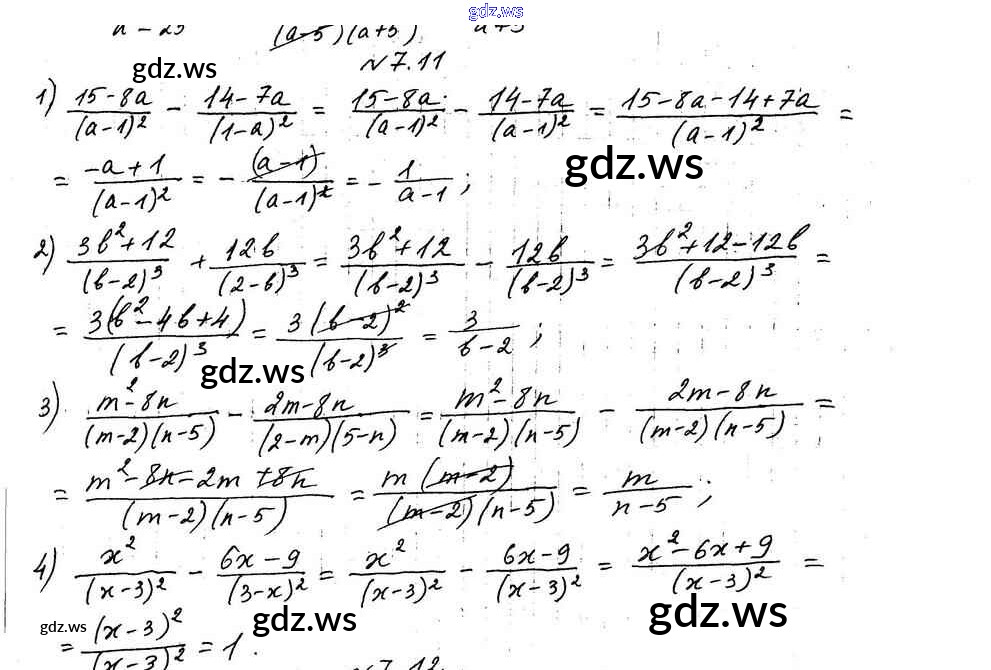 gdz.ws
(a-5)(a+5)
gdz.ws
№7.11
1) (15-8a)/(a-1)² - (14-7a)/(1-a)² = (15-8a)/(a-1)² - (14-7a)/(a-1)² = (15-8a-14+7a)/(a-1)² =
= (-a+1)/(a-1)² = - (a-1)/(a-1)² = - 1/(a-1);
gdz.ws
2) (3b²+12)/(b-2)³ + 12b/(2-b)³ = (3b²+12)/(b-2)³ - 12b/(b-2)³ = (3b²+12-12b)/(b-2)³ =
= 3(b²-4b+4)/(b-2)³ = 3(b-2)²/(b-2)³ = 3/(b-2);
gdz.ws
3) (m²-8n)/(m-2)(n-5) - (2m-8n)/(2-m)(5-n) = (m²-8n)/(m-2)(n-5) - (2m-8n)/(m-2)(n-5) =
= (m²-8n-2m+8n)/(m-2)(n-5) = m(m-2)/(m-2)(n-5) = m/(n-5);
4) x²/(x-3)² - (6x-9)/(3-x)² = x²/(x-3)² - (6x-9)/(x-3)² = (x²-6x+9)/(x-3)² =
gdz.ws
gdz.ws
gdz.ws
= (x-3)²/(x-3)² = 1.
№7.12.